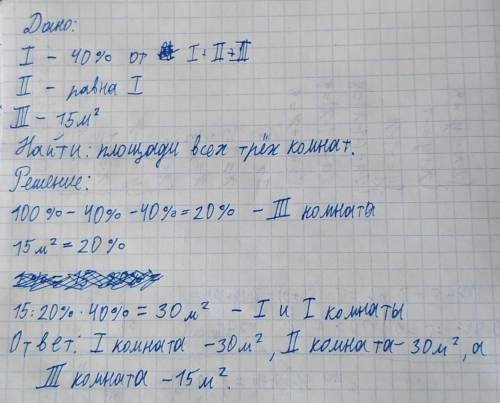 Дано:
I - 40% от I + II + III
II - равна I
III - 15м²
Найти: площади всех трёх комнат.
Решение:
100% - 40% - 40% = 20% - III комната
15м² = 20%
15:20% · 40% = 30м² - I и I комнаты
Ответ: I комната - 30м², II комната - 30м², а
III комната - 15м².